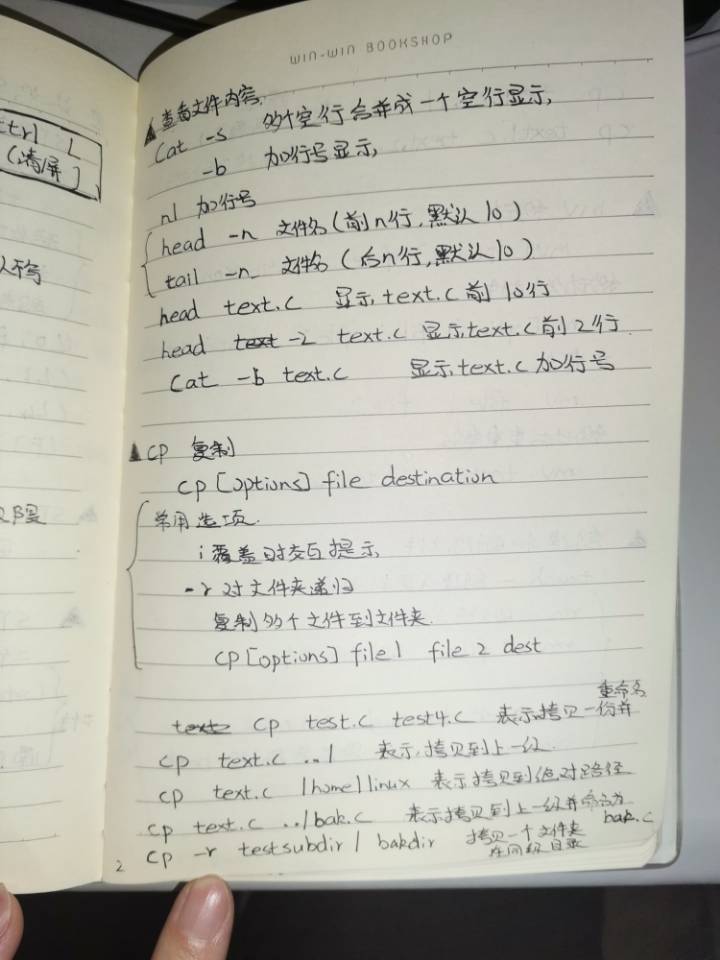 WIN-WIN BOOKSHOP
ctrl L
(清屏)
▲查看文件内容.
Cat -s 多个空行合并成一个空行显示,
-b 加行号显示,
nl 加行号
head -n 文件名(前n行,默认10)
tail -n 文件名(后n行,默认10)
head text.c 显示text.c前10行
head text -2 text.c 显示text.c前2行.
Cat -b text.c 显示text.c加行号
▲cp 复制
cp [options] file destination
常用选项.
i覆盖时交互提示
-r 对文件夹递归
复制多个文件到文件夹.
cp[options] file1 file2 dest
text cp test.c test4.c 表示拷贝一份并重命名
cp text.c ../ 表示拷贝到上一级.
cp text.c /home/linux 表示拷贝到绝对路径
cp text.c ../bak.c 表示拷贝到上一级并命名为bak.c
cp -r testsubdir/ bakdir 拷贝一个文件夹
在同级目录
2